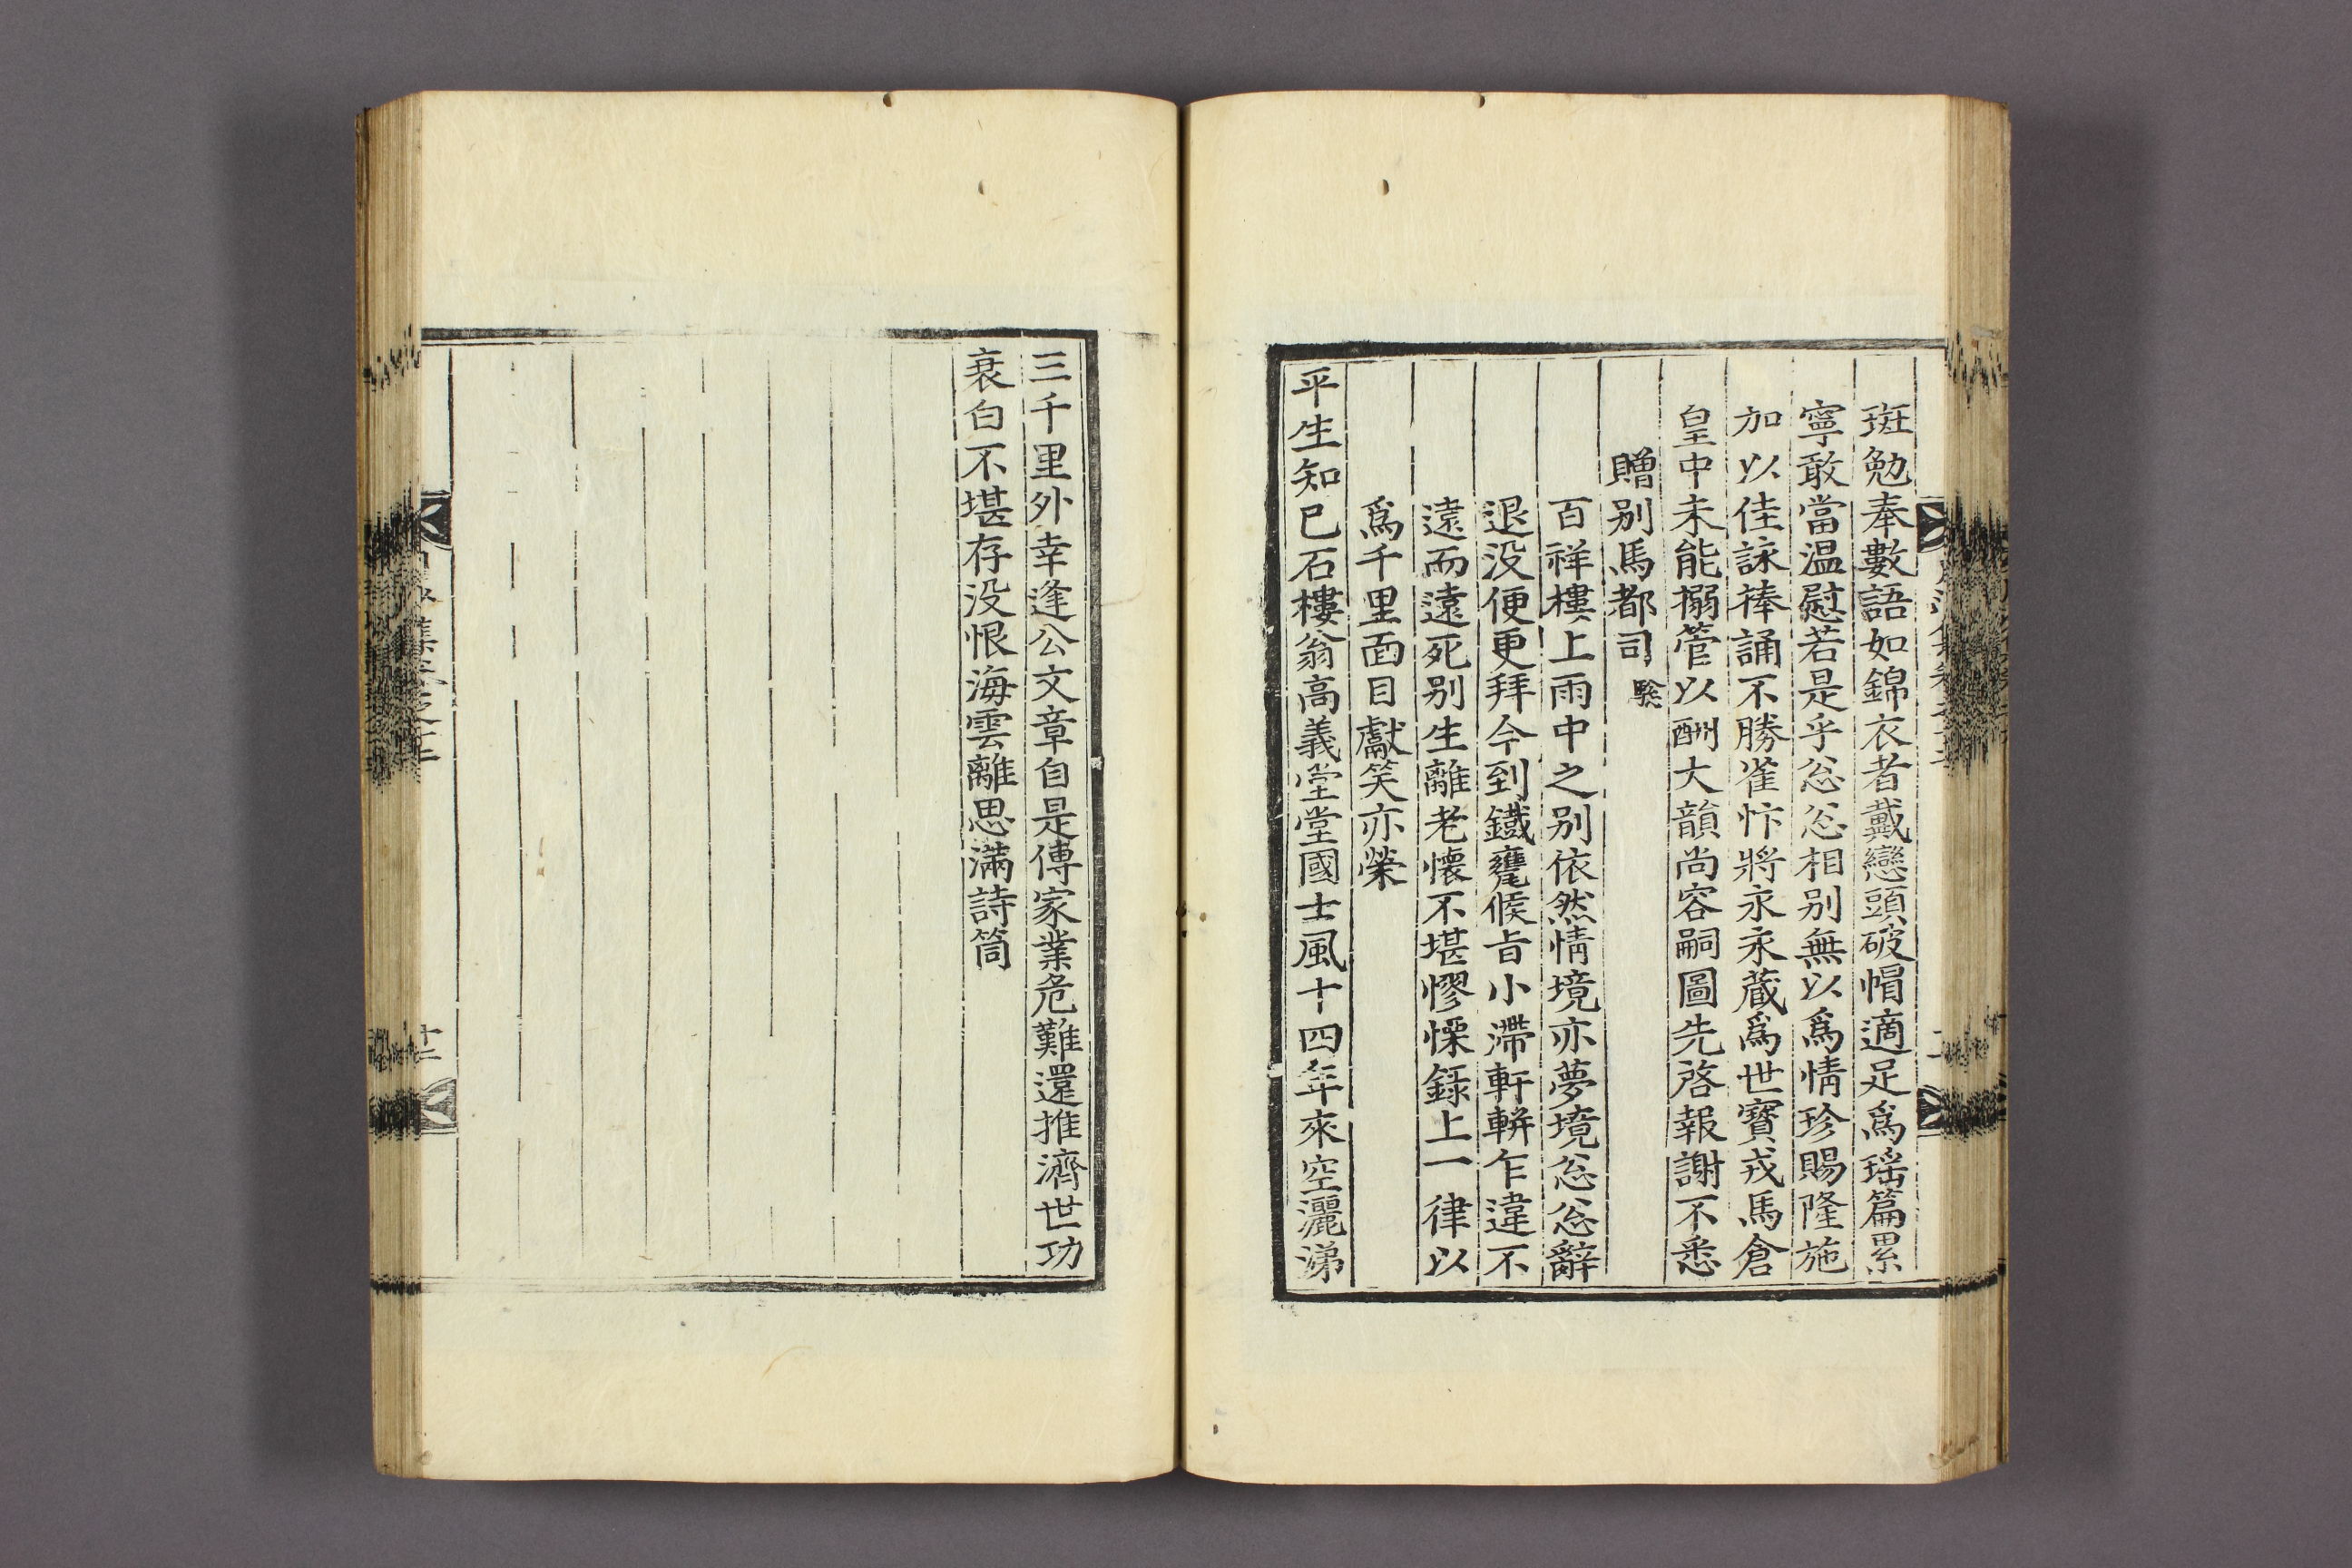 斑勉奉數語如錦衣者戴戀頭破帽適足爲瑶篇累
寧敢當温慰若是乎忩忩相别無以爲情珍賜隆施
加以佳詠捧誦不勝雀忭將永永蔵爲世寳戎馬倉
皇中未能搦管以酬大韻尚容嗣圖先啓報謝不悉
贈别馬都司
百祥樓上雨中之别依然情境亦夢境忩忩辭
退没便更拜今到鐵甕候旨小滯軒軿乍違不
遠而遠死别生離老懷不堪憀慄録上一律以
爲千里面目獻笑亦榮
平生知已石樓翁高義堂堂國士風十四年來空灑涕
三千里外幸逢公文章自是傳家業危難還推濟世功
衰白不堪存没恨海雲離思滿詩筒
十二